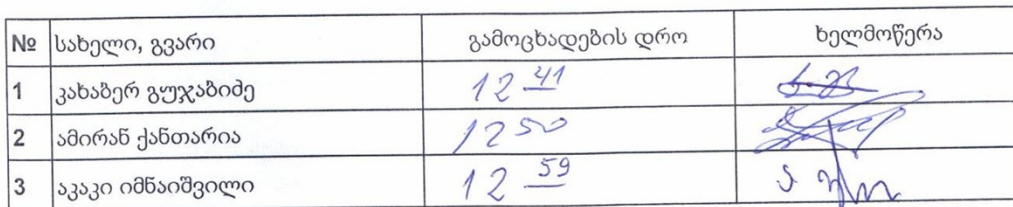 № სახელი, გვარი გამოცხადების დრო ხელმოწერა
1 კახაბერ გუჯაბიძე 12 41
2 ამირან ქანთარია 12 50
3 აკაკი იმნაიშვილი 12 59